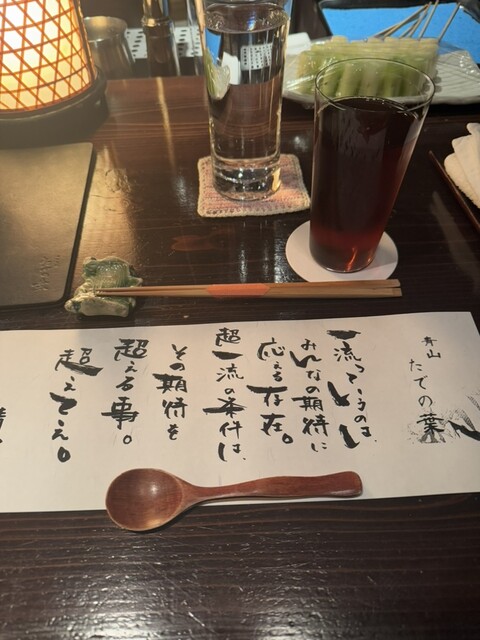 青山
たでの葉
一流っていうのは、
みんなの期待に
応える存在。
超一流の条件は、
その期待を
超える事。
超えてえ。